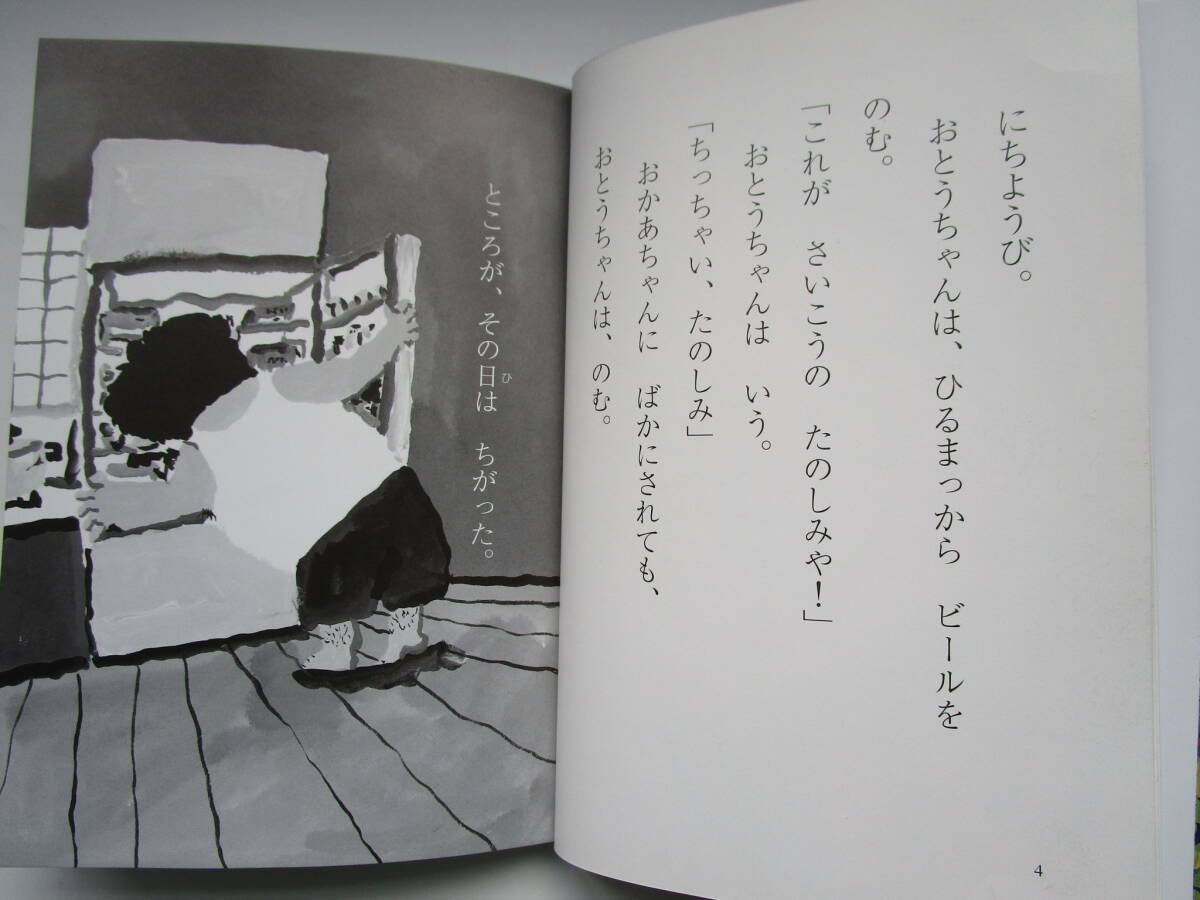 にちようび。
おとうちゃんは、ひるまっから　ビールを
のむ。
「これが　さいこうの　たのしみや！」
おとうちゃんは　いう。
「ちっちゃい、たのしみ」
おかあちゃんに　ばかにされても、
おとうちゃんは、のむ。
4
ところが、その日は　ちがった。
ひ